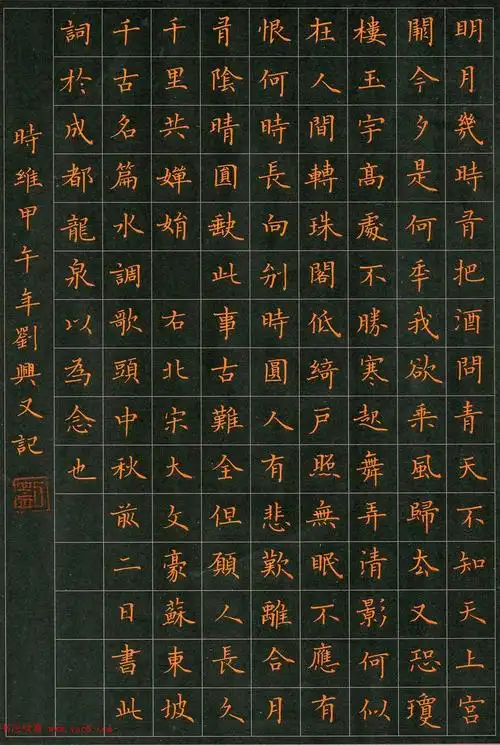 明月幾時有把酒問青天不知天上宮
闕今夕是何年我欲乘風歸去又恐瓊
樓玉宇高處不勝寒起舞弄清影何似
在人間轉珠閣低綺戶照無眠不應有
恨何時長向別時圓人有悲歡離合月
有陰晴圓缺此事古難全但願人長久
千里共嬋娟 右北宋大文豪蘇東坡
千古名篇水調歌頭中秋前二日書此
詞於成都龍泉以為念也
時維甲午年劉興又記